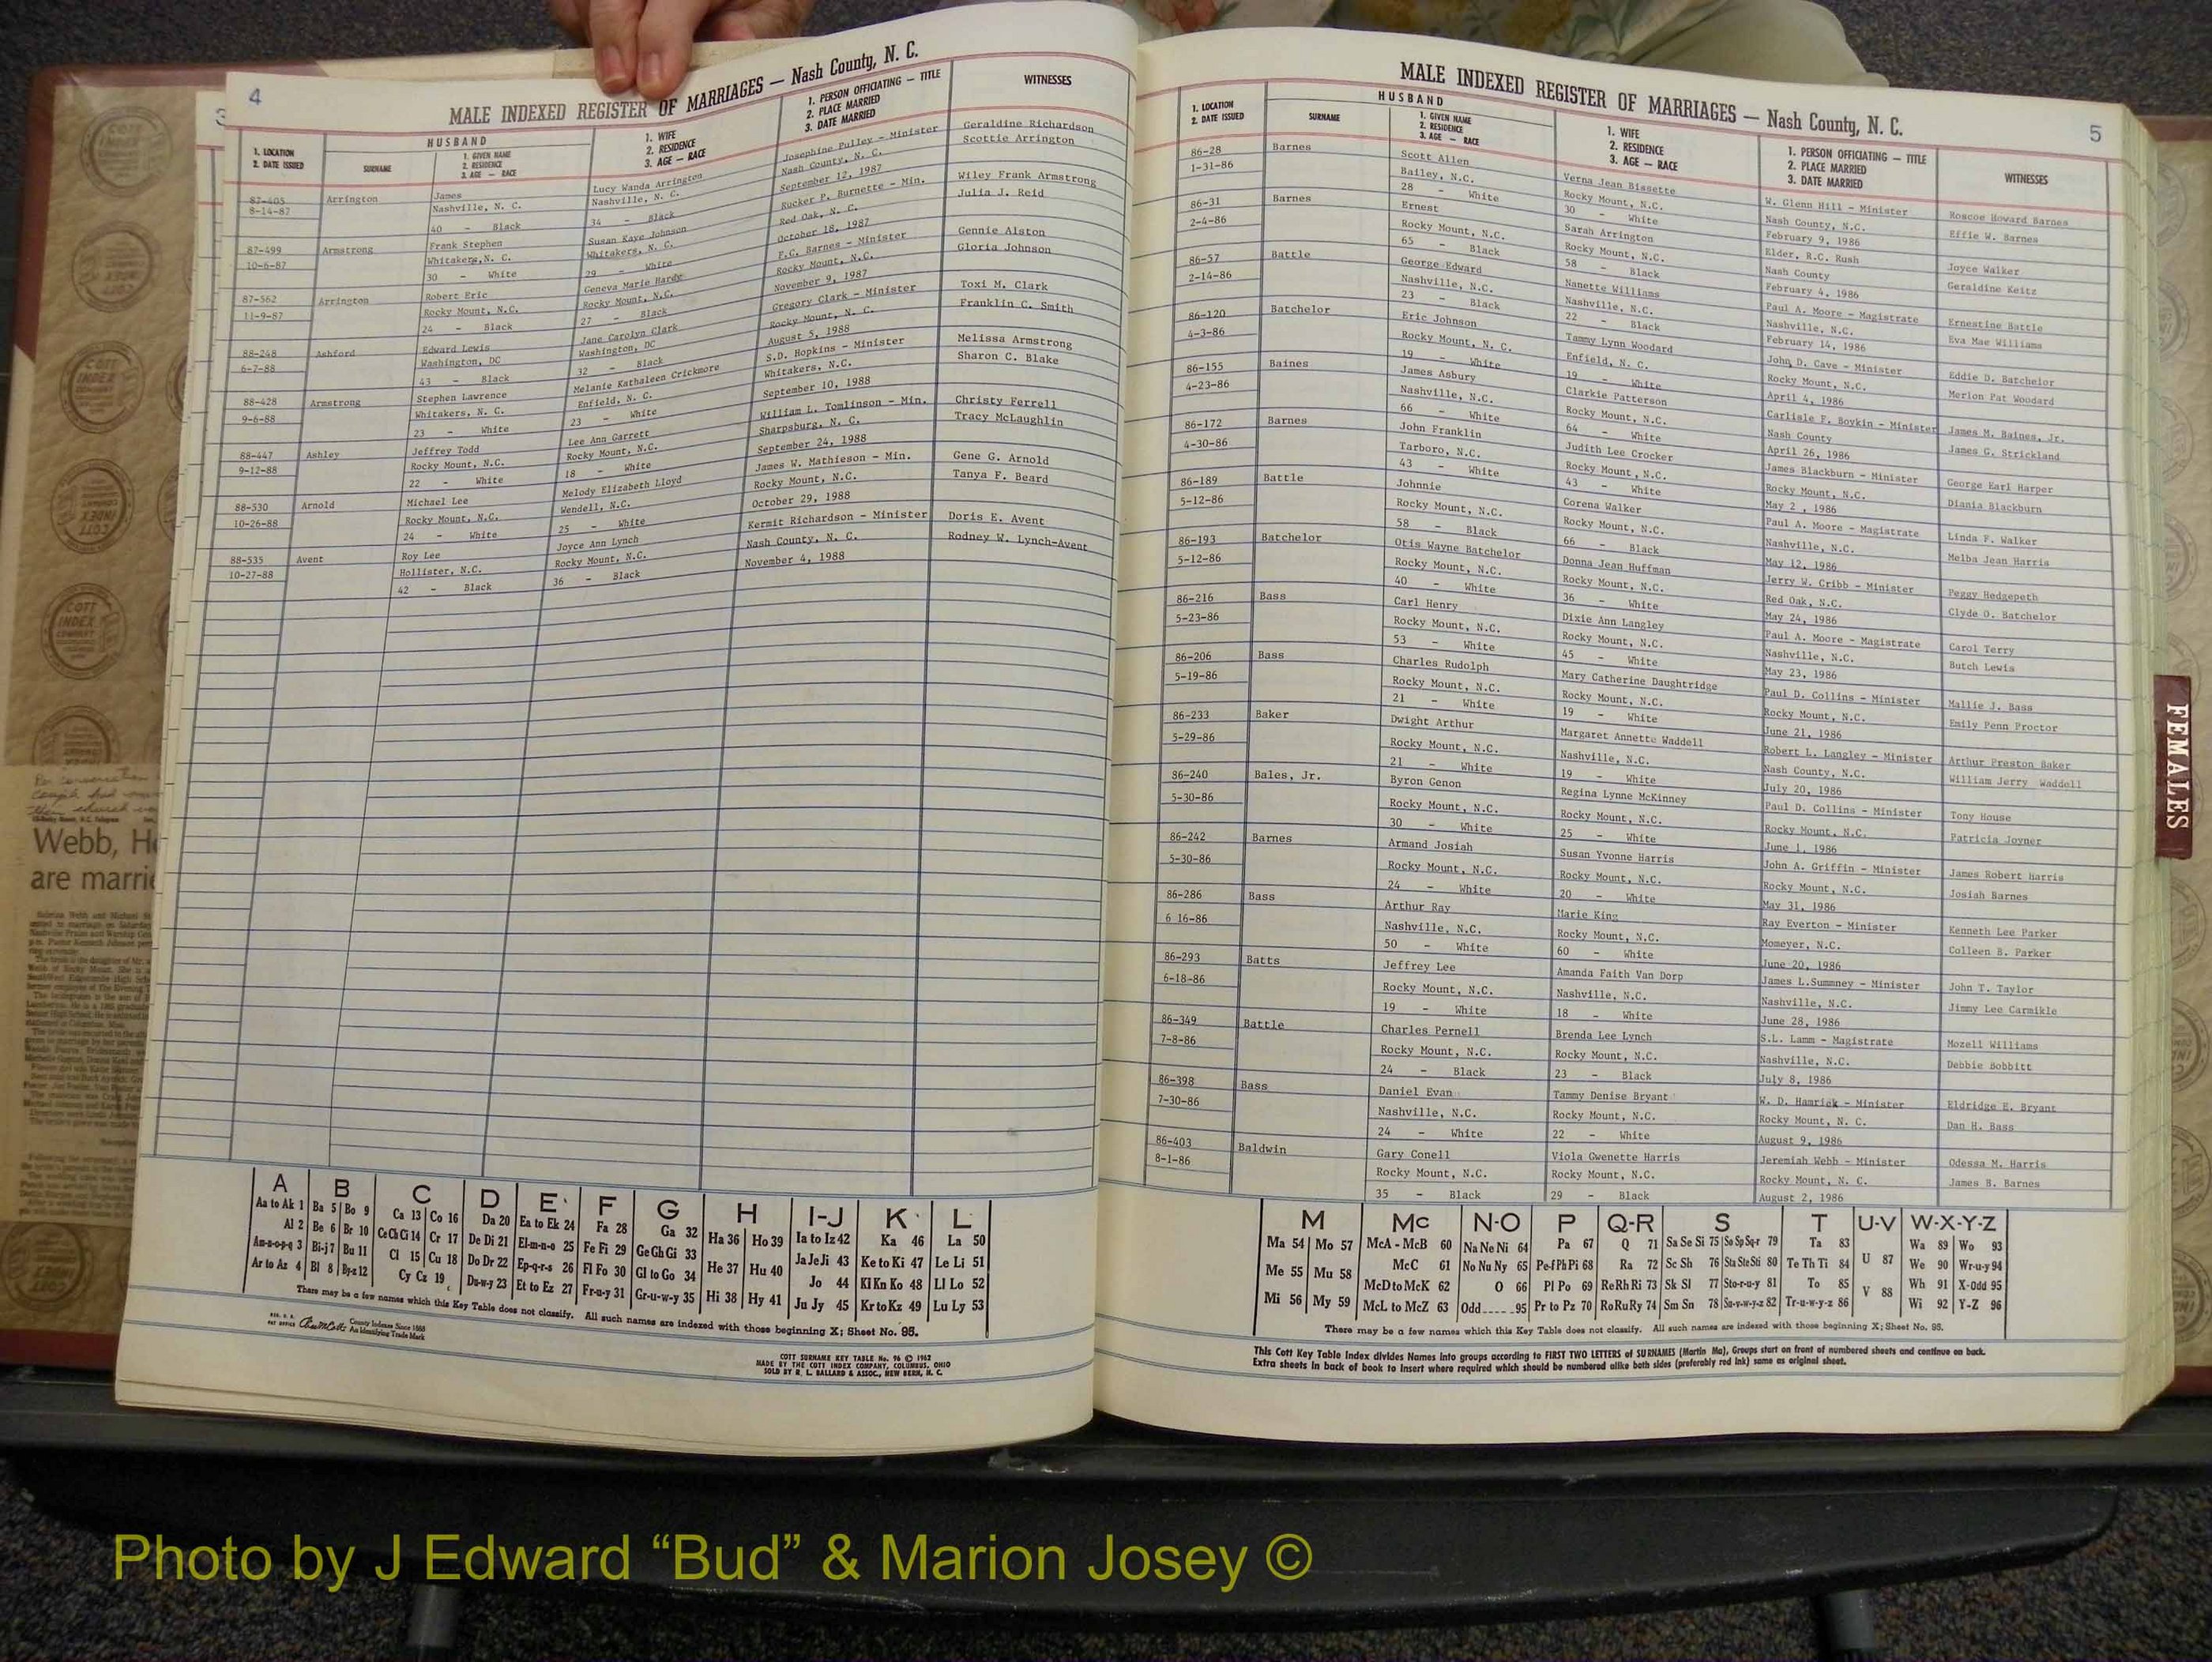 4
MALE INDEXED REGISTER OF MARRIAGES — Nash County, N. C.
1. LOCATION
2. DATE ISSUED
HUSBAND
SURNAME
1. GIVEN NAME
2. RESIDENCE
3. AGE — RACE
1. WIFE
2. RESIDENCE
3. AGE — RACE
1. PERSON OFFICIATING — TITLE
2. PLACE MARRIED
3. DATE MARRIED
WITNESSES
87-405 Arrington James Lucy Wanda Arrington Josephine Pulley - Minister Geraldine Richardson
8-14-87 Nashville, N. C. Nashville, N. C. Nash County, N. C. Scottie Arrington
40 - Black 34 - Black September 12, 1987
87-499 Armstrong Frank Stephen Susan Kaye Johnson Rucker P. Burnette - Min. Wiley Frank Armstrong
10-6-87 Whitakers, N. C. Whitakers, N. C. Red Oak, N. C. Julia J. Reid
30 - White 29 - White October 18, 1987
87-562 Arrington Robert Eric Geneva Marie Hardy F.C. Barnes - Minister Gennie Alston
11-9-87 Rocky Mount, N.C. Rocky Mount, N.C. Rocky Mount, N.C. Gloria Johnson
24 - Black 27 - Black November 9, 1987
88-248 Ashford Edward Lewis Jane Carolyn Clark Gregory Clark - Minister Toxi M. Clark
6-7-88 Washington, DC Washington, DC Rocky Mount, N. C. Franklin C. Smith
43 - Black 32 - Black August 5, 1988
88-428 Armstrong Stephen Lawrence Melanie Kathaleen Crickmore S.D. Hopkins - Minister Melissa Armstrong
9-6-88 Whitakers, N. C. Enfield, N. C. Whitakers, N.C. Sharon C. Blake
23 - White 23 - White September 10, 1988
88-447 Ashley Jeffrey Todd Lee Ann Garrett William L. Tomlinson - Min. Christy Ferrell
9-12-88 Rocky Mount, N.C. Rocky Mount, N.C. Sharpsburg, N. C. Tracy McLaughlin
22 - White 18 - White September 24, 1988
88-530 Arnold Michael Lee Melody Elizabeth Lloyd James W. Mathieson - Min. Gene G. Arnold
10-26-88 Rocky Mount, N.C. Wendell, N.C. Rocky Mount, N.C. Tanya F. Beard
24 - White 25 - White October 29, 1988
88-535 Avent Roy Lee Joyce Ann Lynch Kermit Richardson - Minister Doris E. Avent
10-27-88 Hollister, N.C. Rocky Mount, N.C. Nash County, N. C. Rodney W. Lynch-Avent
42 - Black 36 - Black November 4, 1988
A B C D E F G H I-J K L
Aa to Ak 1 Ba 5 Bo 9 Ca 13 Co 16 Da 20 Ea to Ek 24 Fa 28 Ga 32 Ha 36 Ho 39 Ia to Iz 42 Ka 46 La 50
Al 2 Be 6 Br 10 Ce Ch Ci 14 Cr 17 De Di 21 El-m-n-o 25 Fe Fi 29 Ge Gh Gi 33 He 37 Hu 40 Ja Je Ji 43 Ke to Ki 47 Le Li 51
Am-n-o-p-q 3 Bi-j 7 Bu 11 Cl 15 Cu 18 Do Dr 22 Ep-q-r-s 26 Fl Fo 30 Gl to Go 34 Jo 44 Kl Kn Ko 48 Ll Lo 52
Ar to Az 4 Bl 8 By-z 12 Cy Cz 19 Du-w-y 23 Et to Ez 27 Fr-u-y 31 Gr-u-w-y 35 Hi 38 Hy 41 Ju Jy 45 Kr to Kz 49 Lu Ly 53
There may be a few names which this Key Table does not classify. All such names are indexed with those beginning X; Sheet No. 95.
County Indexes Since 1888
An Identifying Trade Mark
COTT SURNAME KEY TABLE No. 96 © 1962
MADE BY THE COTT INDEX COMPANY, COLUMBUS, OHIO
SOLD BY R. L. BALLARD & ASSOC., NEW BERN, N. C.
5
MALE INDEXED REGISTER OF MARRIAGES — Nash County, N. C.
1. LOCATION
2. DATE ISSUED
HUSBAND
SURNAME
1. GIVEN NAME
2. RESIDENCE
3. AGE — RACE
1. WIFE
2. RESIDENCE
3. AGE — RACE
1. PERSON OFFICIATING — TITLE
2. PLACE MARRIED
3. DATE MARRIED
WITNESSES
86-28 Barnes Scott Allen Verna Jean Bissette W. Glenn Hill - Minister Roscoe Howard Barnes
1-31-86 Bailey, N.C. Rocky Mount, N.C. Nash County, N.C. Effie W. Barnes
28 - White 30 - White February 9, 1986
86-31 Barnes Ernest Sarah Arrington Elder, R.C. Rush Joyce Walker
2-4-86 Rocky Mount, N.C. Rocky Mount, N.C. Nash County Geraldine Keitz
65 - Black 58 - Black February 4, 1986
86-57 Battle George Edward Nanette Williams Paul A. Moore - Magistrate Ernestine Battle
2-14-86 Nashville, N.C. Nashville, N.C. Nashville, N.C. Eva Mae Williams
23 - Black 22 - Black February 14, 1986
86-120 Batchelor Eric Johnson Tammy Lynn Woodard John D. Cave - Minister Eddie D. Batchelor
4-3-86 Rocky Mount, N. C. Enfield, N. C. Rocky Mount, N.C. Merlon Pat Woodard
19 - White 19 - White April 4, 1986
86-155 Baines James Asbury Clarkie Patterson Carlisle F. Boykin - Minister James M. Baines, Jr.
4-23-86 Nashville, N.C. Rocky Mount, N.C. Nash County James G. Strickland
66 - White 64 - White April 26, 1986
86-172 Barnes John Franklin Judith Lee Crocker James Blackburn - Minister George Earl Harper
4-30-86 Tarboro, N.C. Rocky Mount, N.C. Rocky Mount, N.C. Diania Blackburn
43 - White 43 - White May 2 , 1986
86-189 Battle Johnnie Corena Walker Paul A. Moore - Magistrate Linda F. Walker
5-12-86 Rocky Mount, N.C. Rocky Mount, N.C. Nashville, N.C. Melba Jean Harris
58 - Black 66 - Black May 12, 1986
86-193 Batchelor Otis Wayne Batchelor Donna Jean Huffman Jerry W. Cribb - Minister Peggy Hedgepeth
5-12-86 Rocky Mount, N.C. Rocky Mount, N.C. Red Oak, N.C. Clyde O. Batchelor
40 - White 36 - White May 24, 1986
86-216 Bass Carl Henry Dixie Ann Langley Paul A. Moore - Magistrate Carol Terry
5-23-86 Rocky Mount, N.C. Rocky Mount, N.C. Nashville, N.C. Butch Lewis
53 - White 45 - White May 23, 1986
86-206 Bass Charles Rudolph Mary Catherine Daughtridge Paul D. Collins - Minister Mallie J. Bass
5-19-86 Rocky Mount, N.C. Rocky Mount, N.C. Rocky Mount, N.C. Emily Penn Proctor
21 - White 19 - White June 21, 1986
86-233 Baker Dwight Arthur Margaret Annette Waddell Robert L. Langley - Minister Arthur Preston Baker
5-29-86 Rocky Mount, N.C. Nashville, N.C. Nash County, N.C. William Jerry Waddell
21 - White 19 - White July 20, 1986
86-240 Bales, Jr. Byron Genon Regina Lynne McKinney Paul D. Collins - Minister Tony House
5-30-86 Rocky Mount, N.C. Rocky Mount, N.C. Rocky Mount, N.C. Patricia Joyner
30 - White 25 - White June 1, 1986
86-242 Barnes Armand Josiah Susan Yvonne Harris John A. Griffin - Minister James Robert Harris
5-30-86 Rocky Mount, N.C. Rocky Mount, N.C. Rocky Mount, N.C. Josiah Barnes
24 - White 20 - White May 31, 1986
86-286 Bass Arthur Ray Marie King Ray Everton - Minister Kenneth Lee Parker
6 16-86 Nashville, N.C. Rocky Mount, N.C. Momeyer, N.C. Colleen B. Parker
50 - White 60 - White June 20, 1986
86-293 Batts Jeffrey Lee Amanda Faith Van Dorp James L.Summney - Minister John T. Taylor
6-18-86 Rocky Mount, N.C. Nashville, N.C. Nashville, N.C. Jimmy Lee Carmikle
19 - White 18 - White June 28, 1986
86-349 Battle Charles Pernell Brenda Lee Lynch S.L. Lamm - Magistrate Mozell Williams
7-8-86 Rocky Mount, N.C. Rocky Mount, N.C. Nashville, N.C. Debbie Bobbitt
24 - Black 23 - Black July 8, 1986
86-398 Bass Daniel Evan Tammy Denise Bryant W. D. Hamrick - Minister Eldridge E. Bryant
7-30-86 Nashville, N.C. Rocky Mount, N.C. Rocky Mount, N. C. Dan H. Bass
24 - White 22 - White August 9, 1986
86-403 Baldwin Gary Conell Viola Gwenette Harris Jeremiah Webb - Minister Odessa M. Harris
8-1-86 Rocky Mount, N.C. Rocky Mount, N.C. Rocky Mount, N. C. James B. Barnes
35 - Black 29 - Black August 2, 1986
M Mc N-O P Q-R S T U-V W-X-Y-Z
Ma 54 Mo 57 McA - McB 60 Na Ne Ni 64 Pa 67 Q 71 Sa Se Si 75 So Sp Sq-r 79 Ta 83 U 87 Wa 89 Wo 93
Me 55 Mu 58 McC 61 No Nu Ny 65 Pe-f Ph Pi 68 Ra 72 Sc Sh 76 Sta Ste Sti 80 Te Th Ti 84 We 90 Wr-u-y 94
McD to McK 62 O 66 Pl Po 69 Re Rh Ri 73 Sk Sl 77 Sto-r-u-y 81 To 85 V 88 Wh 91 X-Odd 95
Mi 56 My 59 McL to McZ 63 Odd 95 Pr to Pz 70 Ro Ru Ry 74 Sm Sn 78 Su-v-w-y-z 82 Tr-u-w-y-z 86 Wi 92 Y-Z 96
There may be a few names which this Key Table does not classify. All such names are indexed with those beginning X; Sheet No. 95.
This Cott Key Table Index divides Names into groups according to FIRST TWO LETTERS of SURNAMES (Martin Ma), Groups start on front of numbered sheets and continue on back.
Extra sheets in back of book to insert where required which should be numbered alike both sides (preferably red ink) same as original sheet.
FEMALES
3
Webb, H
are marrie
COTT
INDEX
COMPANY
Photo by J Edward “Bud” & Marion Josey ©